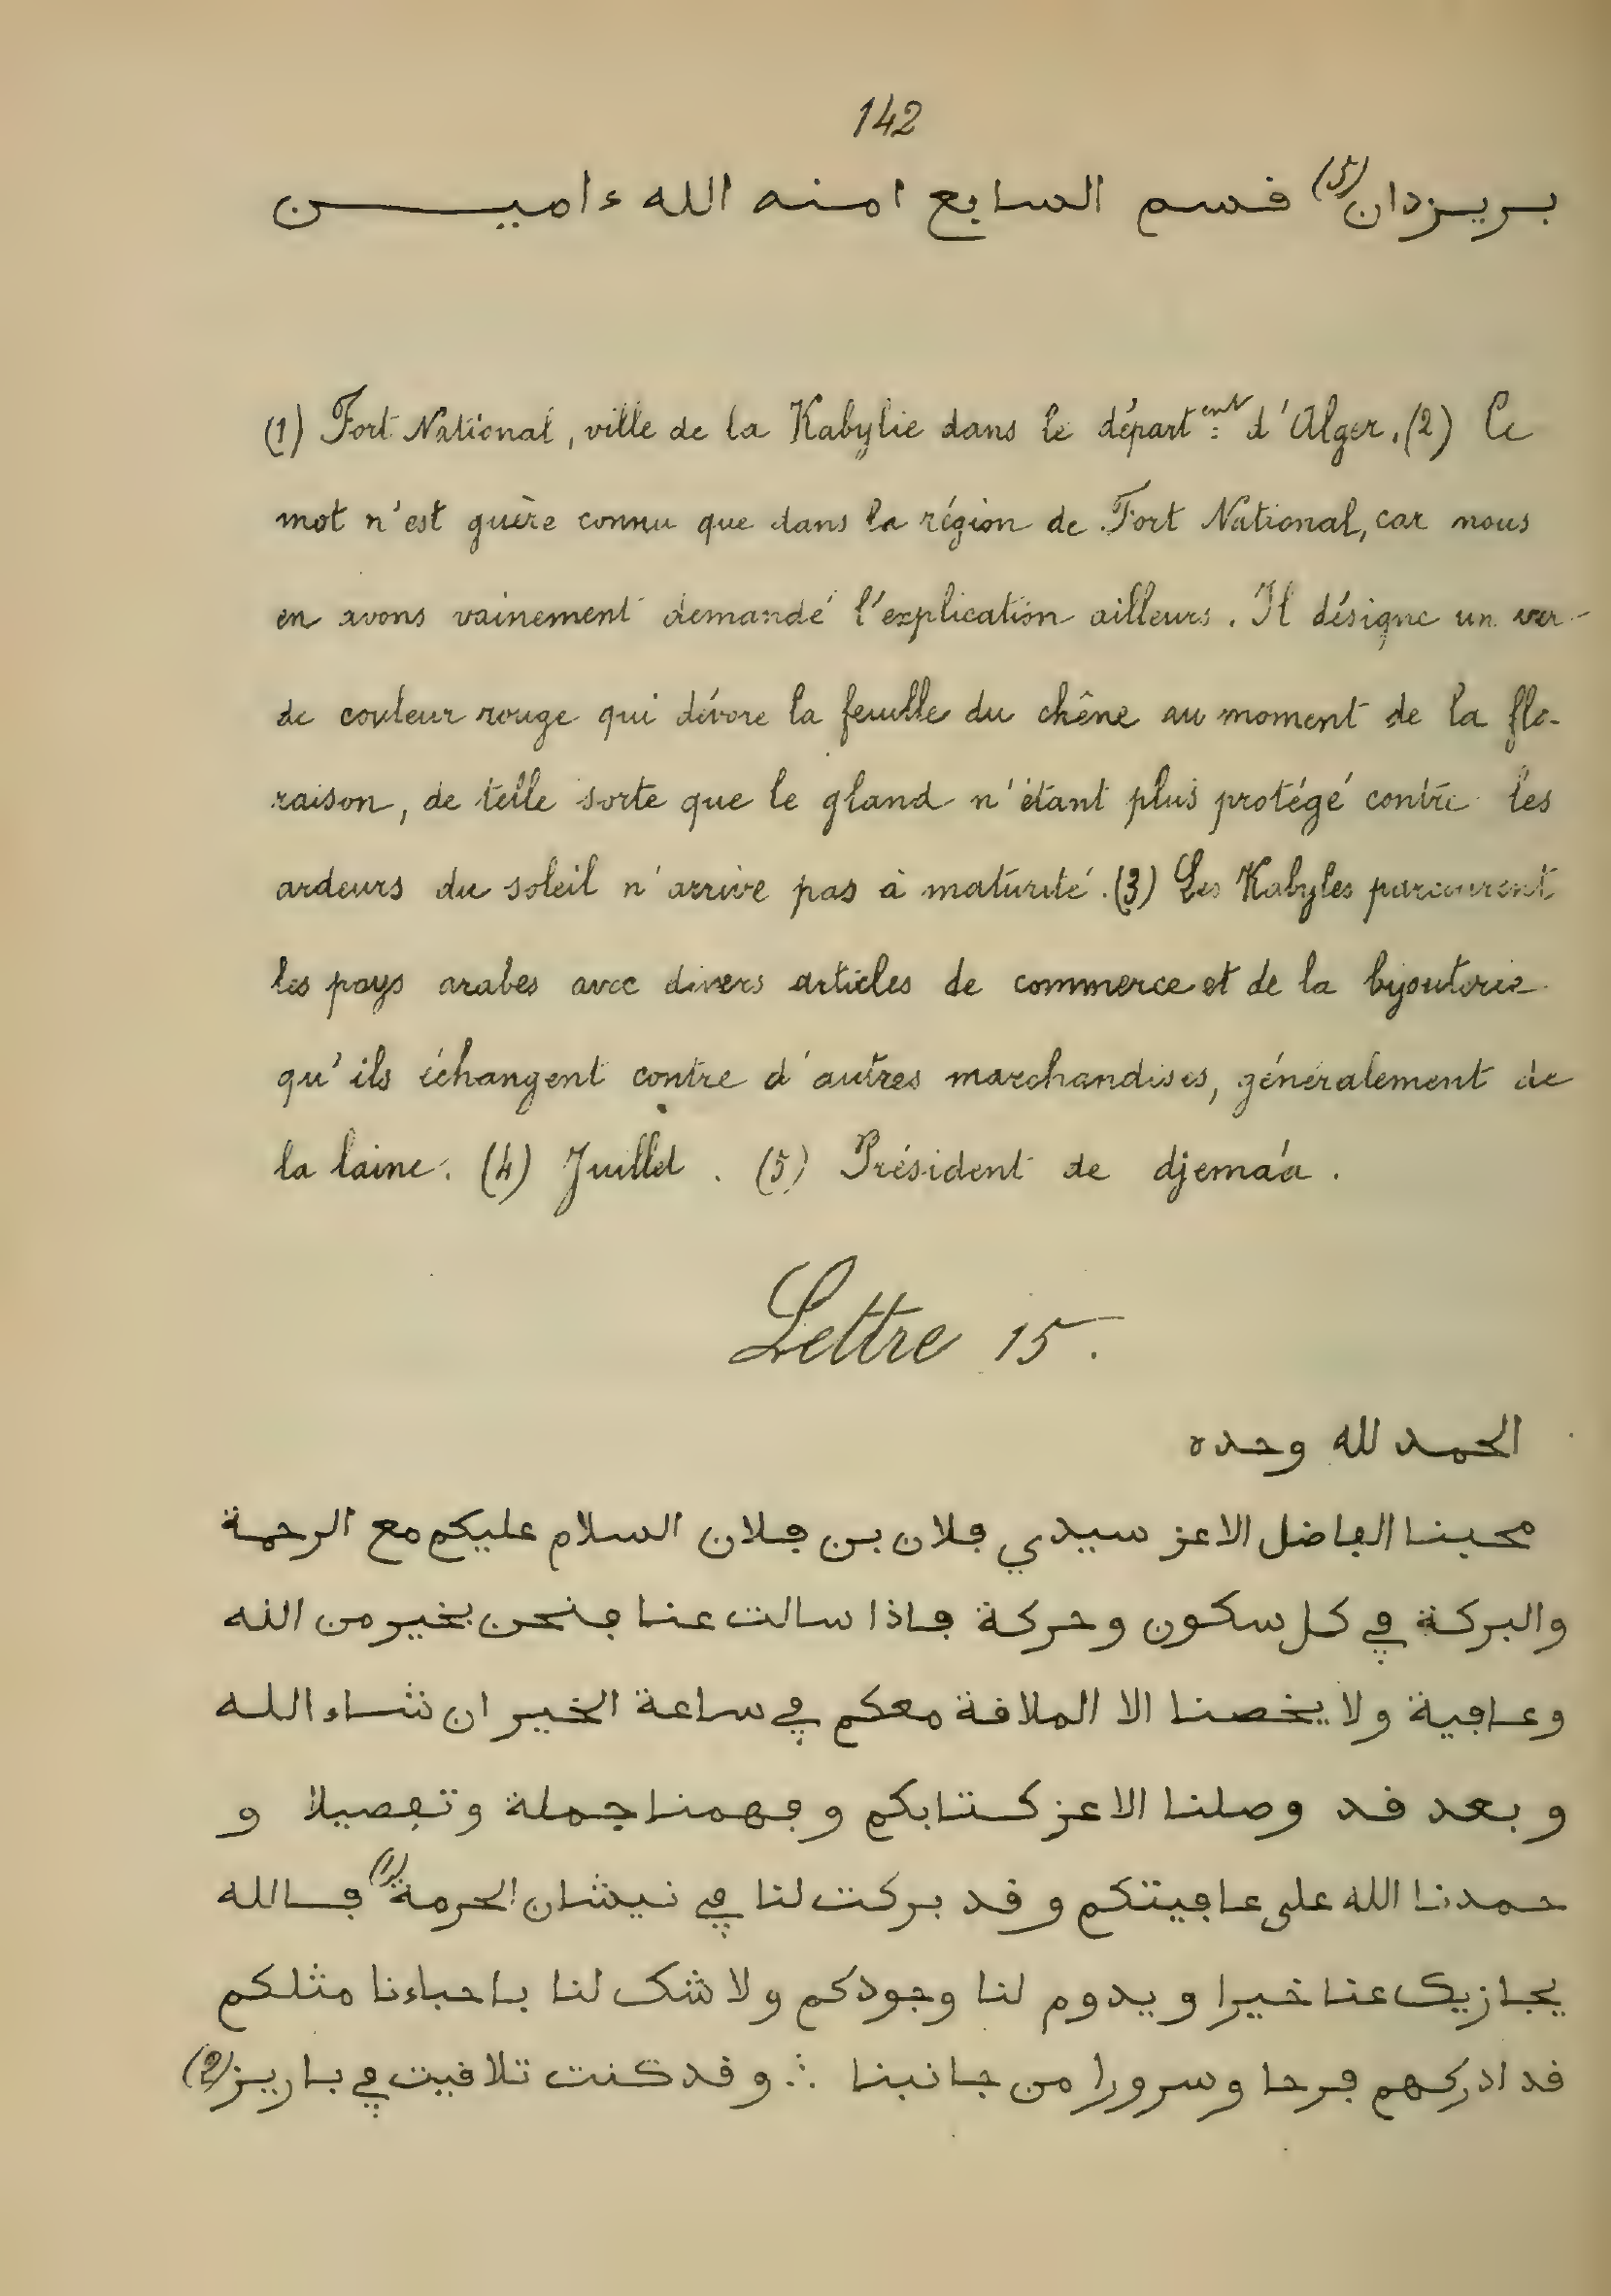 142
بريزدان (5) قسم السابع امنه الله ءاميـــن
(1) Fort National, ville de la Kabylie dans le départ.ent d'Alger. (2) Ce
mot n'est guère connu que dans la région de Fort National, car nous
en avons vainement demandé l'explication ailleurs. Il désigne un ver
de couleur rouge qui dévore la feuille du chêne au moment de la flo-
raison, de telle sorte que le gland n'étant plus protégé contre les
ardeurs du soleil n'arrive pas à maturité. (3) Les Kabyles parcourent
les pays arabes avec divers articles de commerce et de la bijouterie
qu'ils échangent contre d'autres marchandises, généralement de
la laine. (4) Juillet. (5) Président de djemaâ.
Lettre 15.
الحمد لله وحده
محبنا الفاضل الاعز سيدي فلان بن فلان السلام عليكم مع الرحمة
والبركة في كل سكون وحركة فاذا سالت عنا فنحن بخير من الله
وعافية ولا يخصنا الا الملاقة معكم في ساعة الخير ان شاء الله
وبعد قد وصلنا الاعز كتابكم وفهمنا جملة وتفصيلا و
حمدنا الله على عافيتكم وقد بركت لنا في نيشان الحرمة (1) فالله
يجازيك عنا خيرا ويدوم لنا وجودكم ولا شك لنا باحباءنا مثلكم
قد ادركهم فرحا وسرورا من جانبنا ∴ وقد كنت تلاقيت في باريز (2)